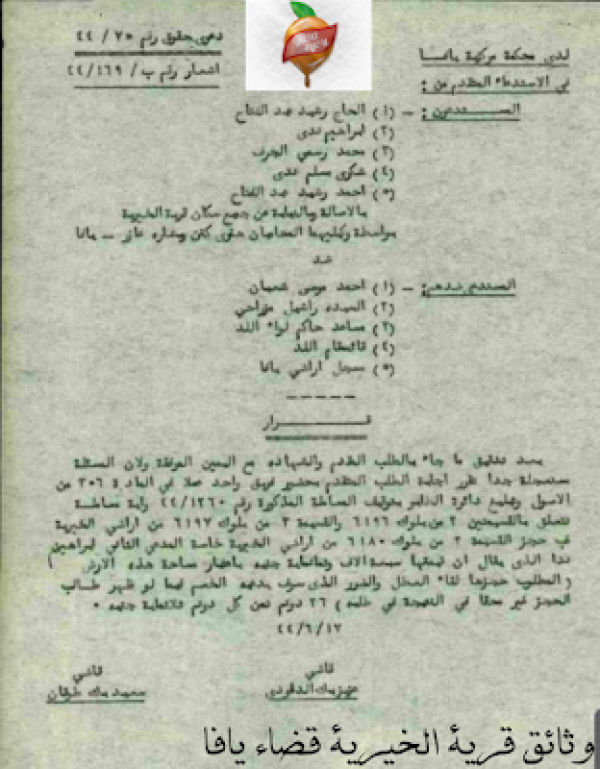 لدى محكمة مركزية يافا
دعوى حقوق رقم ٧٥ / ٤٤
في الاستدعاء المقدم من :
اشعار رقم ب / ٤٤/١٦٩
المستدعون : - (١) الحاج رشيد عبد الفتاح
(٢) ابراهيم ندى
(٣) محمد رسمي الجرف
(٤) شكري مسلم ندى
(٥) احمد رشيد عبد الفتاح
بالاصالة وبالنيابة عن جميع سكان قرية الخيرية
بواسطة وكيليهما المحاميان - يافا
ضد
المستدعى ضدهم : - (١) احمد موسى شعبان
(٢) السيده راشيل مزراحي
(٣) مساعد حاكم لواء اللد
(٤) قائمقام اللد
(٥) مسجل اراضي يافا
قـــرار
بعد تدقيق ما جاء بالطلب المقدم والشهاده مع اليمين المرفقة ولان المسئلة
مستعجلة جدا تقرر اجابة الطلب المتقدم بحضور فريق واحد عملا في المادة ٣٠٦ من
الاصول وتبليغ دائرة التنفيذ بتوقيف المعاملة المذكورة رقم ٤٤/١٢٦٠ واية معاملة
تتعلق بالقسيمتين ٢ من بلوك ٦١٩٦ والقسيمة ٣ من بلوك ٦١٩٧ من اراضي الخيرية
حجز القسيمة ٢ من بلوك ٦١٨٠ من اراضي الخيرية خاصة المدعي الثاني ابراهيم
ندا الذي يقال ان قيمتها سبعة الاف وثمانماية جنيه باعتبار مساحة هذه الارض
( المطلوب حجزها لقاء العطل والضرر الذي سوف يدعيه الخصم فيما لو ظهر طالب
الحجز غير محقا في النتيجة في طلبه ) ٢٦ دونم ثمن كل دونم ثلاثماية جنيه .
٤٤/٦/١٢
قاضي
قاضي
عزيز بك الداودي
سعيد بك طوقان
وثائق قرية الخيرية قضاء يافا